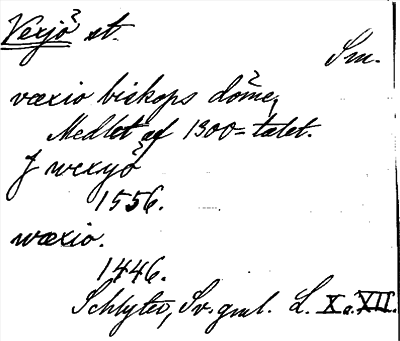 Vexjö st.
Sm.
væxio biskops döme,
Medlet af 1300=talet.
J wexyö
1556.
wæxio.
1446.
Schlyter, Sv. gml. L. X o. XII.